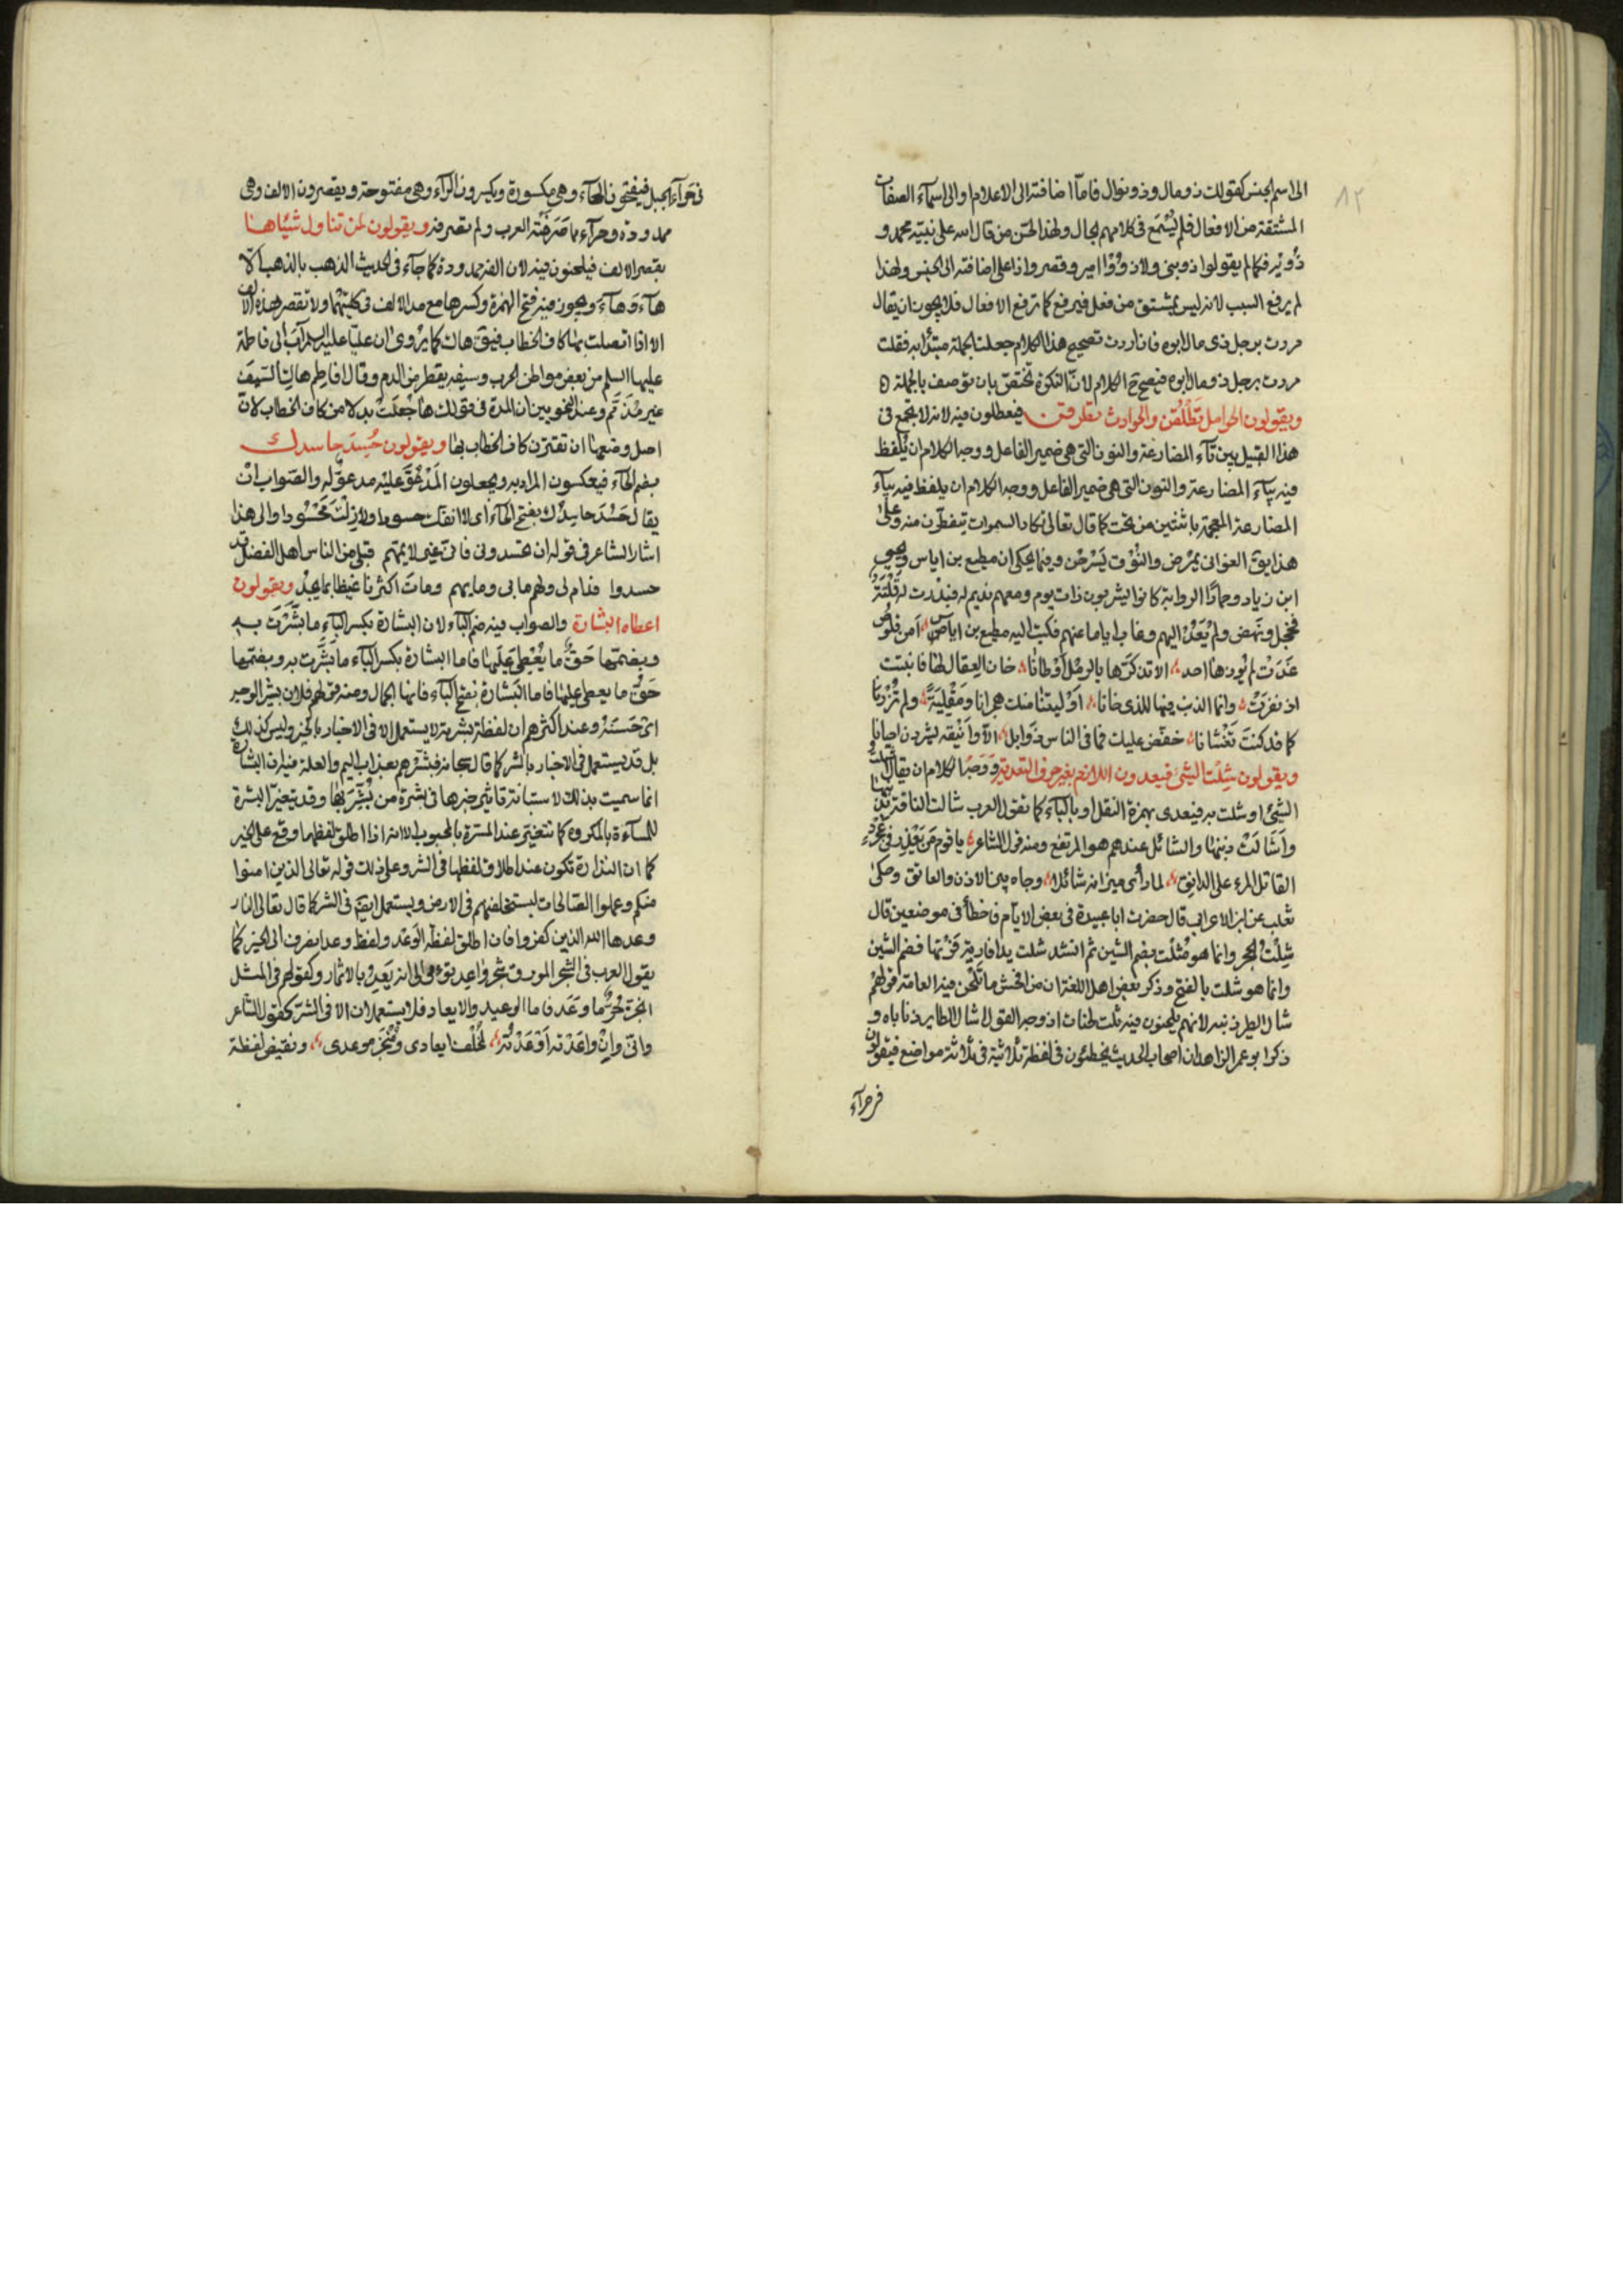 ٨٢
الى اسم الجنس كقولك ذو مال وذو نوال فاما اضافته الى الاعلام او الى اسماء الصفات
المشتقة من الافعال فلم يسمع في كلامهم بحال ولهذا لحن من قال صلى الله على نبيه محمد و
ذويه فكما لم يقولوا ذو نبي ولا ذو امير وقصروا ذا على اضافته الى الجنس ولهذا
لم يرفع السبب لانه ليس بمشتق من فعل فيرفع كما ترفع الافعال فلا يجوز ان يقال
مررت برجل ذى مال ابوه فان اردت تصحيح هذا الكلام جعلت الجملة مبتدأ به فقلت
مررت برجل ذو مال ابوه فيصح ح الكلام لان النكرة تختص بان توصف بالجملة
ويقولون الحوامل تطلقن والحوادث تطرقن فيغلطون فيه لانه لا يجمع في
هذا القبيل بين تاء المضارعة والنون التي هي ضمير الفاعل ووجه الكلام ان يلفظ
فيه بياء المضارعة والنون التي هي ضمير الفاعل ووجه الكلام ان يلفظ فيه بياء
المضارعة المعجمة باثنتين من تحت كما قال تعالى تكاد السموات يتفطرن منه وعلى
هذا يق الغواني يمرضن والنوق يسرحن وفيما يحكى ان مطيع بن اياس ويحيى
ابن زياد وحمادا الراوية كانوا يشربون ذات يوم ومعهم نديم لهم فبدرت له فلتة
فخجل ونهض ولم يعد اليهم وغاب اياما عنهم فكتب اليه مطيع بن اياس امن قلوص
غدت لم يوذها احد الا تذكرها بالرمل اوطانا خان العقال لها فانبتت
اذ نفرت وانما الذنب فيها للذى خانا اوليتنا منك هجرانا ومقلية ولم تزرنا
كما قد كنت تغشانا خفض عليك فما في الناس ذو ابل الا واينقه يشردن احيانا
ويقولون شلت الشئ فيعدون اللازم بغير حرف التعدية ووجه الكلام ان يقال اشلت
الشئ او شلت به فيعدى بهمزة النقل او بالباء كما تقول العرب شالت الناقة بذنبها
واشالت ذنبها والشائل عندهم هو المرتفع ومنه قول الشاعر يا قوم من يعذر في عجرد
القاتل المرء على الدانق لما رأى ميزانه شائلا وجاه بين الاذن والعاتق وحكى
ثعلب عن ابن الاعرابي قال حضرت ابا عبيدة في بعض الايام فاخطأ في موضعين قال
شلت الحجر وانما هو شلت بضم الشين ثم انشد شلت يدا فارية فرتها فضم الشين
وانما هو شلت بالفتح وذكر بعض اهل اللغة ان من افحش ما تلحن فيه العامة قولهم
شال الطير ذنبه لانهم يلحنون فيه ثلث لحنات اذ وجه القول اشال الطاير ذناباه و
ذكر ابو عمر الزاهد ان اصحاب الحديث يخطئون في لفظة ثلاثية في ثلاثة مواضع فيقولون
في حراء
في حراء الجبل فيفتحون الحاء وهي مكسورة ويكسرون الراء وهي مفتوحة ويقصرون الالف وهي
ممدودة وحراء مما صرفته العرب ولم تصرفه ويقولون لمن تناول شيئا هـا
بقصر الالف فيلحنون فيه لان الفه ممدودة كما جاء في الحديث الذهب بالذهب الا
هاء وهاء ويجوز فيه فتح الهمزة وكسرها مع مد الالف في كلتيهما ولا تقصر هذه الالف
الا اذا اتصلت بها كاف الخطاب فيق هاك كما يروى ان عليا عليه السلم آب الى فاطمة
عليها السلم من بعض مواطن الحرب وسيفه يقطر من الدم وقال افاطم هاك السيف
غير مذمم وعند النحويين ان المدة في قولك هاء جعلت بدلا من كاف الخطاب لان
اصل وضعها ان تقترن كاف الخطاب بها ويقولون حُسِد حاسدك
بضم الحاء فيعكسون المراد به ويجعلون المدعو عليه مدعو له والصواب ان
يقال حسد حاسدك بفتح الحاء اى لا انفك حسودا ولا زلت محسودا والى هذا
اشار الشاعر في قوله ان يحسدوني فاني غير لائمهم قبلي من الناس اهل الفضل قد
حسدوا فدام لي ولهم ما بي وما بهم ومات اكثرنا غيظا بما يجد ويقولون
اعطاه البشارة والصواب فيه ضم الباء لان البشارة بكسر الباء ما بشرت به
وبضمها حق ما يعطى عليها فاما البشارة بكسر الباء ما بشرت به وبضمها
حق ما يعطى عليها فاما البشارة بفتح الباء فانها الجمال ومنه قولهم فلان بشير الوجه
اى حسنه وعند اكثرهم ان لفظة بشرته لا يستعمل الا في الاخبار بالخير وليس كذلك
بل قد يستعمل في الاخبار بالشر كما قال سبحانه فبشرهم بعذاب اليم والعلة فيه ان البشارة
انما سميت بذلك لاستبانة تاثير خبرها في بشرة من بشر بها وقد تتغير البشرة
للمساءة بالمكروه كما تتغير عند المسرة بالمحبوب الا انه اذا اطلق لفظها وقع على الخير
كما ان النذارة تكون عند اطلاق لفظها في الشر وعلى ذلك قوله تعالى الذين امنوا
منكم وعملوا الصالحات ليستخلفنهم في الارض ويستعمل ايضا في الشر كما قال تعالى النار
وعدها الله الذين كفروا فان اطلق لفظة الوعد ولفظ وعد انصرف الى الخير كما
يقول العرب في الشجر المورق شجر واعد الى انه يعد بالاثمار وكقولهم في المثل
انجز حر ما وعد فاما الوعيد والايعاد فلا يستعملان الا في الشر كقول الشاعر
واني وان واعدته اوعدته لمخلف ايعادى ومنجز موعدى ونقيض لفظة